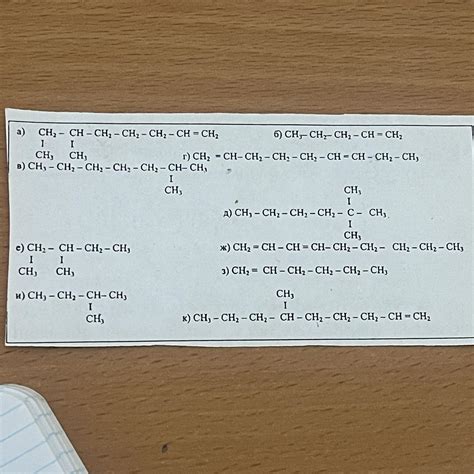 а) CH₂ – CH – CH₂ – CH₂ – CH₂ – CH = CH₂ б) CH₃– CH₂– CH₂ – CH = CH₂
I I
CH₃ CH₃ г) CH₂ = CH– CH₂ – CH₂ – CH₂ – CH = CH – CH₂ – CH₃
в) CH₃ – CH₂ – CH₂ – CH₂ – CH₂ – CH – CH₃
I
CH₃
CH₃
I
д) CH₃ – CH₂ – CH₂ – CH₂ – C – CH₃
I
CH₃
е) CH₂ – CH – CH₂ – CH₃ ж) CH₂ = CH – CH = CH– CH₂ – CH₂ – CH₂ – CH₂ – CH₃
I I
CH₃ CH₃ з) CH₂ = CH – CH₂ – CH₂ – CH₂ – CH₃
и) CH₃ – CH₂ – CH– CH₃ CH₃
I I
CH₃ к) CH₃ – CH₂ – CH₂ – CH – CH₂ – CH₂ – CH₂ – CH = CH₂